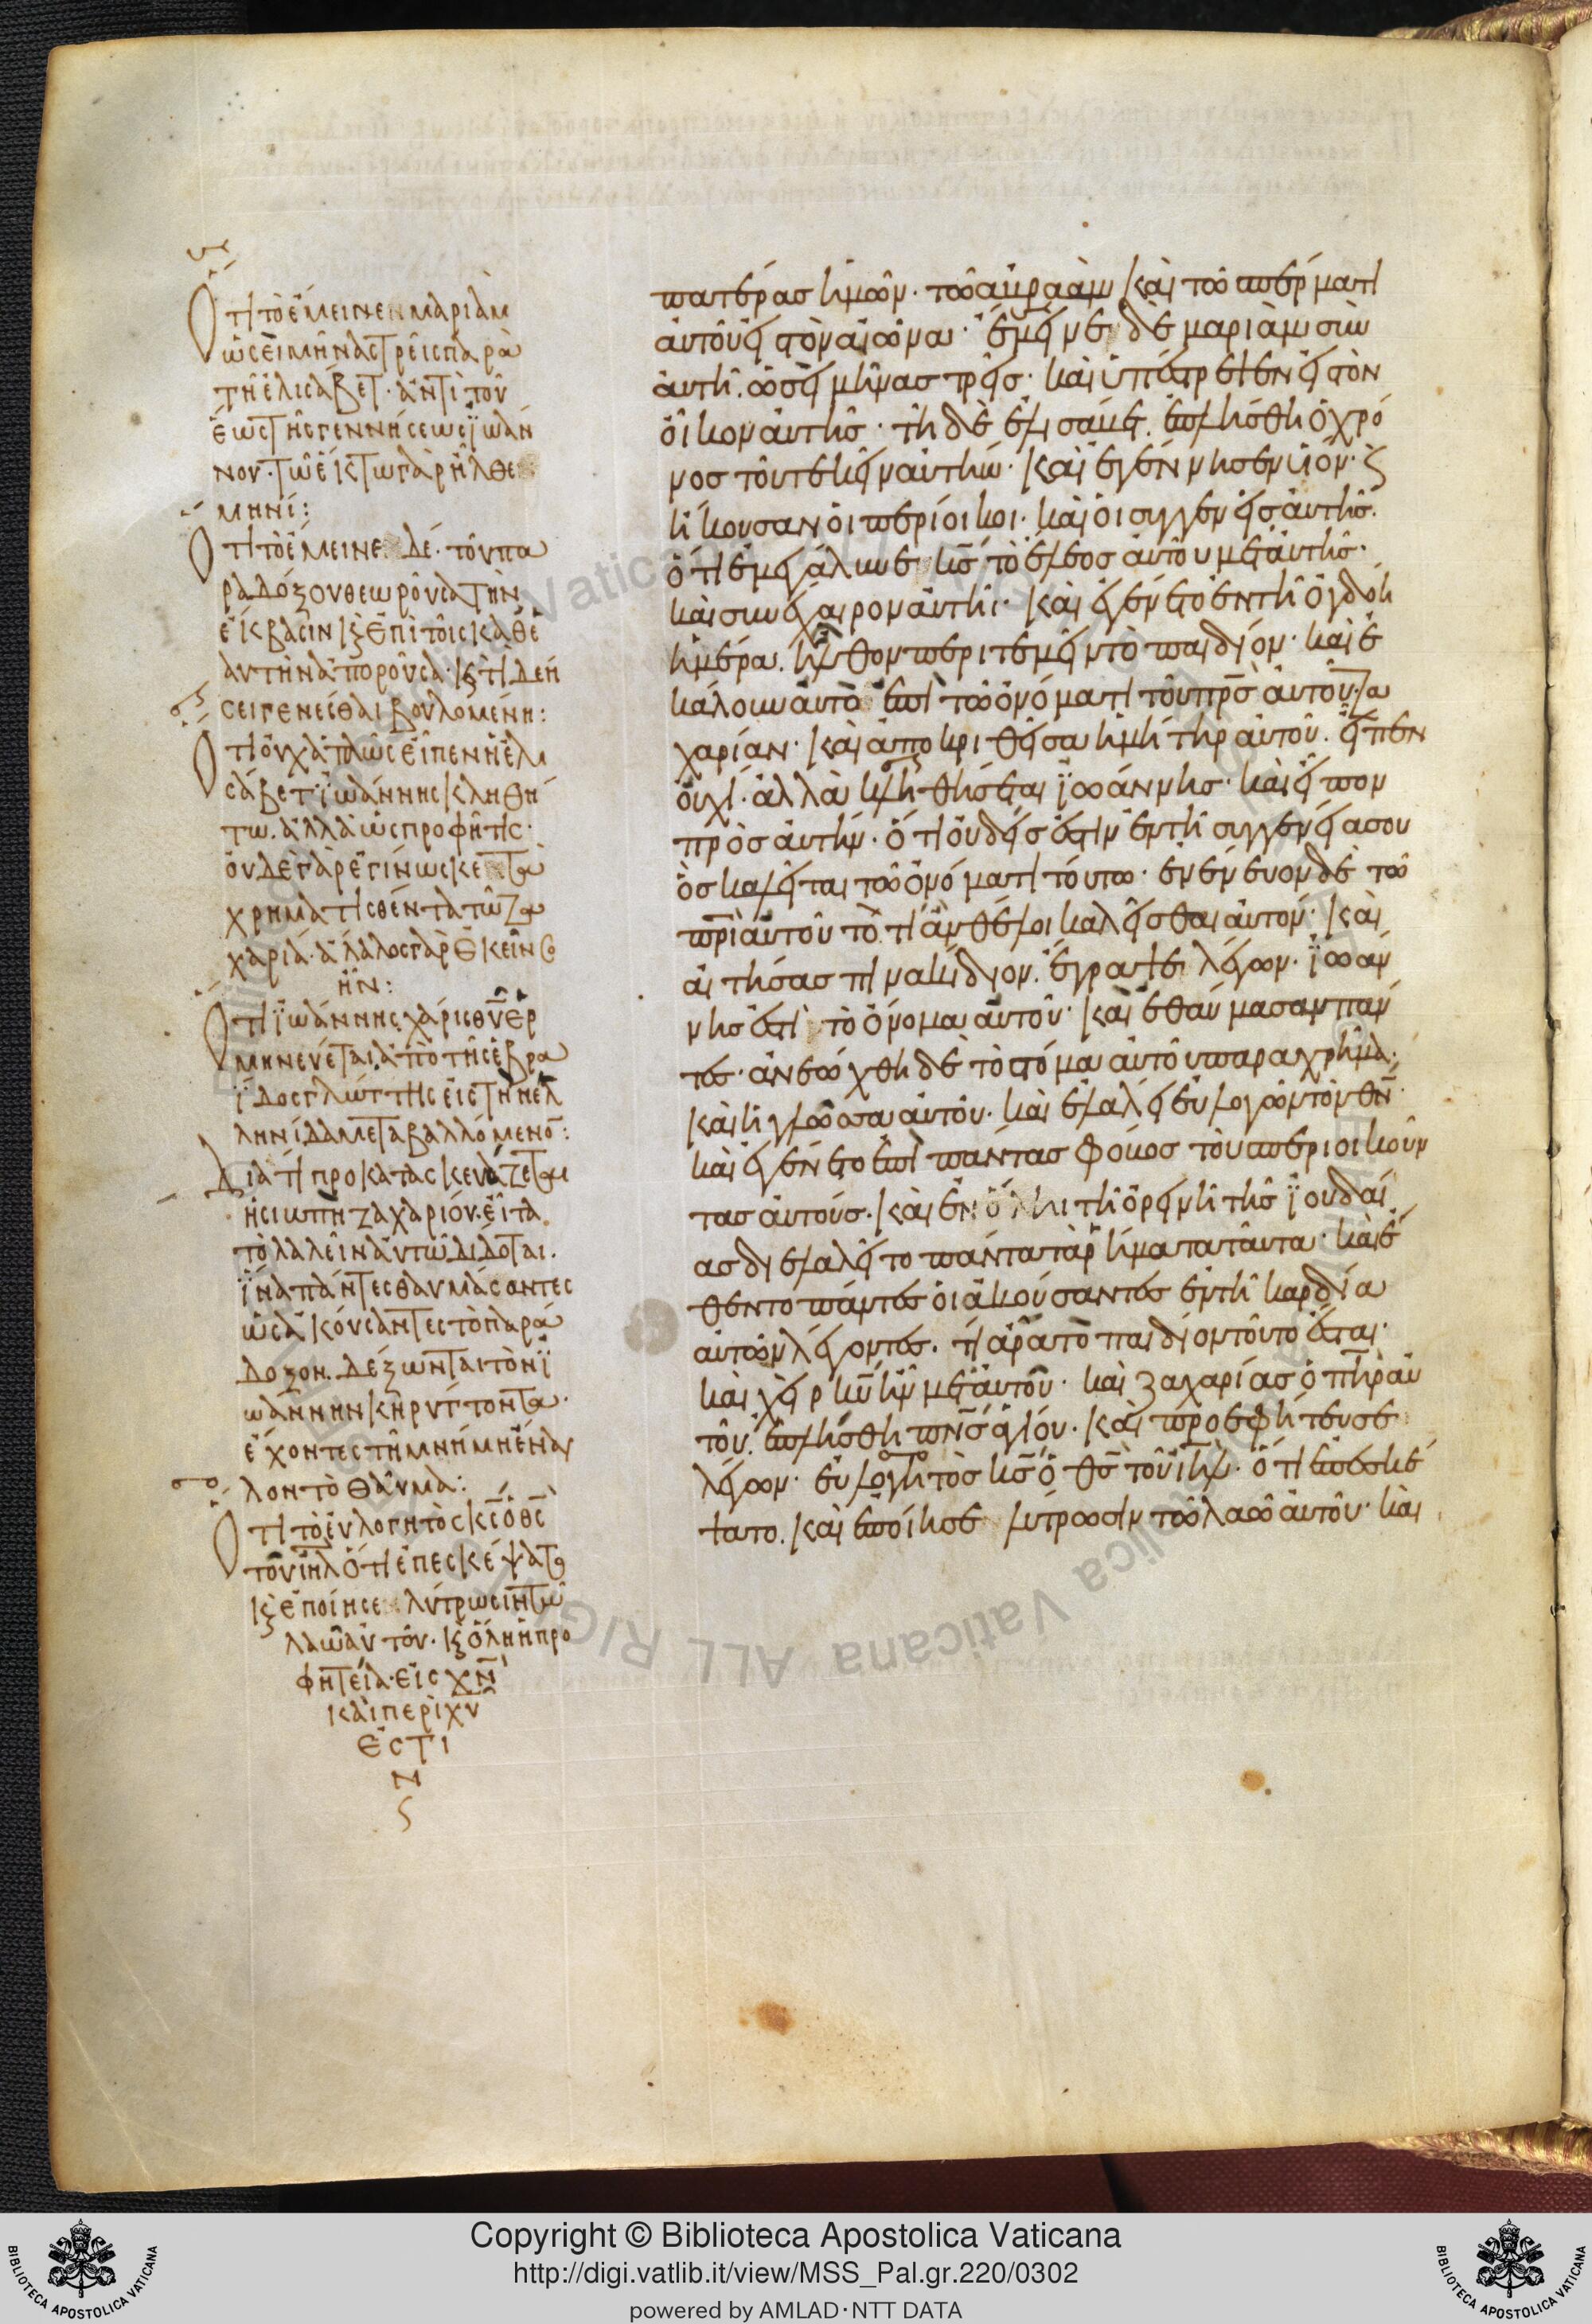 Ὅτι τὸ ἔμεινεν μαριὰμ
ὡσεὶ μῆνας τρεῖς παρὰ
τῆ ἐλισάβετ· ἀντὶ τοῦ
ἕως τῆς γεννήσεως ϊωάν
νου· τῶ ἕκτω γὰρ ἦλθε
μηνί:
Ὅτι τὸ ἔμεινε δέ· τοῦ πα
ραδόξου θεωροῦσα τὴν
ἔκβασιν κ(αὶ) ἐπὶ τοῖς καθ᾽ ἑ
αυτὴν ἀποροῦσα· κ(αὶ) τί δεή
σει γενέσθαι βουλομένη:
Ὅτι οὐχ ἁπλῶς εἶπεν ἡ ἐλι
σάβετ· ϊωάννης κληθή
τω· ἀλλὰ ὡς προφῆτις·
οὐδὲ γὰρ ἐγίνωσκε τὰ
χρηματισθέντα τῶ ζα
χαρία· ἄλαλος γὰρ ἐκεῖνος
ἦν:
Ὅτι ϊωάννης χάρις θῦ ἑρ
μηνεύεται ἀπὸ τῆς ἑβρα
ΐδος γλώττης εἰς τὴν ἑλ
ληνίδα μεταβαλλόμενον:
Διατί προκατασκευάζεται
ἡ σιωπὴ ζαχαρίου· εἶτα
τὸ λαλεῖν αὐτῶ δίδοται·
ἵνα πάντες θαυμάσαντες
ὡς ἀκούσαντες τὸ παρά
δοξον· δέξωνται τὸν ϊ
ωάννην κηρύττοντα·
ἔχοντες τῆ μνήμη ἔναυ
λον τὸ θαῦμα:
Ὅτι τὸ εὐλογητὸς κς ὁ θς
τοῦ ιηλ ὅτι ἐπεσκέψατο
κ(αὶ) ἐποίησε λύτρωσιν τῶ
λαῶ αὐτοῦ· κ(αὶ) ὅλη ἡ προ
φητεία· εἰς χν
καὶ περὶ χυ
ἐστι
ν
πατέρας ἡμῶν· τῶ ἀβραὰμ καὶ τῶ σπέρματι
αὐτοῦ εἰς τὸν αἰῶνα· ἔμεινε δὲ μαριὰμ σὺν
αὐτῆ· ὡσεὶ μῆνας τρεῖς· καὶ ὑπέστρεψεν εἰς τὸν
οἶκον αὐτῆς· τῆ δὲ ἐλισάβετ· ἐπλήσθη ὁ χρό
νος τοῦ τεκεῖν αὐτήν· καὶ ἐγέννησεν υἱόν· κ(αὶ)
ἤκουσαν οἱ περίοικοι· καὶ οἱ συγγενεῖς αὐτῆς·
ὅτι ἐμεγάλυνε κς τὸ ἔλεος αὐτοῦ μετ᾽ αὐτῆς·
καὶ συνέχαιρον αὐτῆι· καὶ ἐγένετο ἐν τῆ ὀγδόη
ἡμέρα· ἦλθον περιτεμεῖν τὸ παιδίον· καὶ ἐ
κάλουν αὐτὸ ἐπὶ τῶ ὀνόματι τοῦ πρς αὐτοῦ· ζα
χαρίαν· καὶ ἀποκριθεῖσα ἡ μήτηρ αὐτοῦ· εἶπεν
οὐχί· ἀλλὰ κληθήσεται ϊωάννης· καὶ εἶπον
πρὸς αὐτήν· ὅτι οὐδείς ἐστιν ἐν τῆ συγγενεία σου
ὃς καλεῖται τῶ ὀνόματι τούτω· ἐνένευον δὲ τῶ
πρὶ αὐτοῦ τὸ τί ἂν θέλοι καλεῖσθαι αὐτόν· καὶ
αἰτήσας πινακίδιον· ἔγραψε λέγων· ϊωάν
νης ἐστὶ τὸ ὄνομα αὐτοῦ· καὶ ἐθαύμασαν πάν
τες· ἀνεώχθη δὲ τὸ στόμα αὐτοῦ παραχρῆμα·
καὶ ἡ γλῶσσα αὐτοῦ· καὶ ἐλάλει εὐλογῶν τὸν θν·
καὶ ἐγένετο ἐπὶ πάντας φόβος τοὺς περιοικοῦν
τας αὐτούς· καὶ ἐν ὅληι τῆ ὀρεινῆ τῆς ϊουδαί
ας διελαλεῖτο πάντα τὰ ῥήματα ταῦτα· καὶ ἔ
θεντο πάντες οἱ ἀκούσαντες ἐν τῆ καρδία
αὐτῶν λέγοντες· τί ἄρα τὸ παιδίον τοῦτο ἔσται·
καὶ χεὶρ κυ ἦν μετ᾽ αὐτοῦ· καὶ ζαχαρίας ὁ πηρ αὐ
τοῦ· ἐπλήσθη πνς ἁγίου· καὶ προεφήτευσε
λέγων· εὐλογητὸς κς ὁ θς τοῦ ιηλ· ὅτι ἐπεσκέ
ψατο· καὶ ἐποίησε λύτρωσιν τῶ λαῶ αὐτοῦ· καὶ
Copyright © Biblioteca Apostolica Vaticana
http://digi.vatlib.it/view/MSS_Pal.gr.220/0302
powered by AMLAD·NTT DATA
BIBLIOTECA APOSTOLICA VATICANA
BIBLIOTECA APOSTOLICA VATICANA